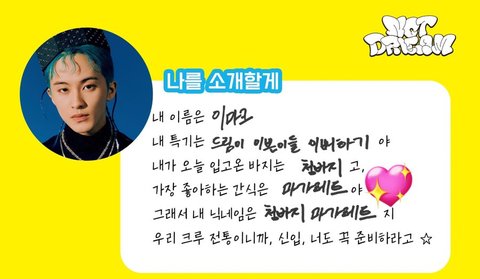 NCT
DREAM
나를 소개할게
내 이름은 이마크
내 특기는 드림이 이본이들 이버하기 야
내가 오늘 입고온 바지는 청바지 고,
가장 좋아하는 간식은 마가레트 야
그래서 내 닉네임은 청바지 마가레트 지
우리 크루 전통이니까, 신입, 너도 꼭 준비하라고 ☆